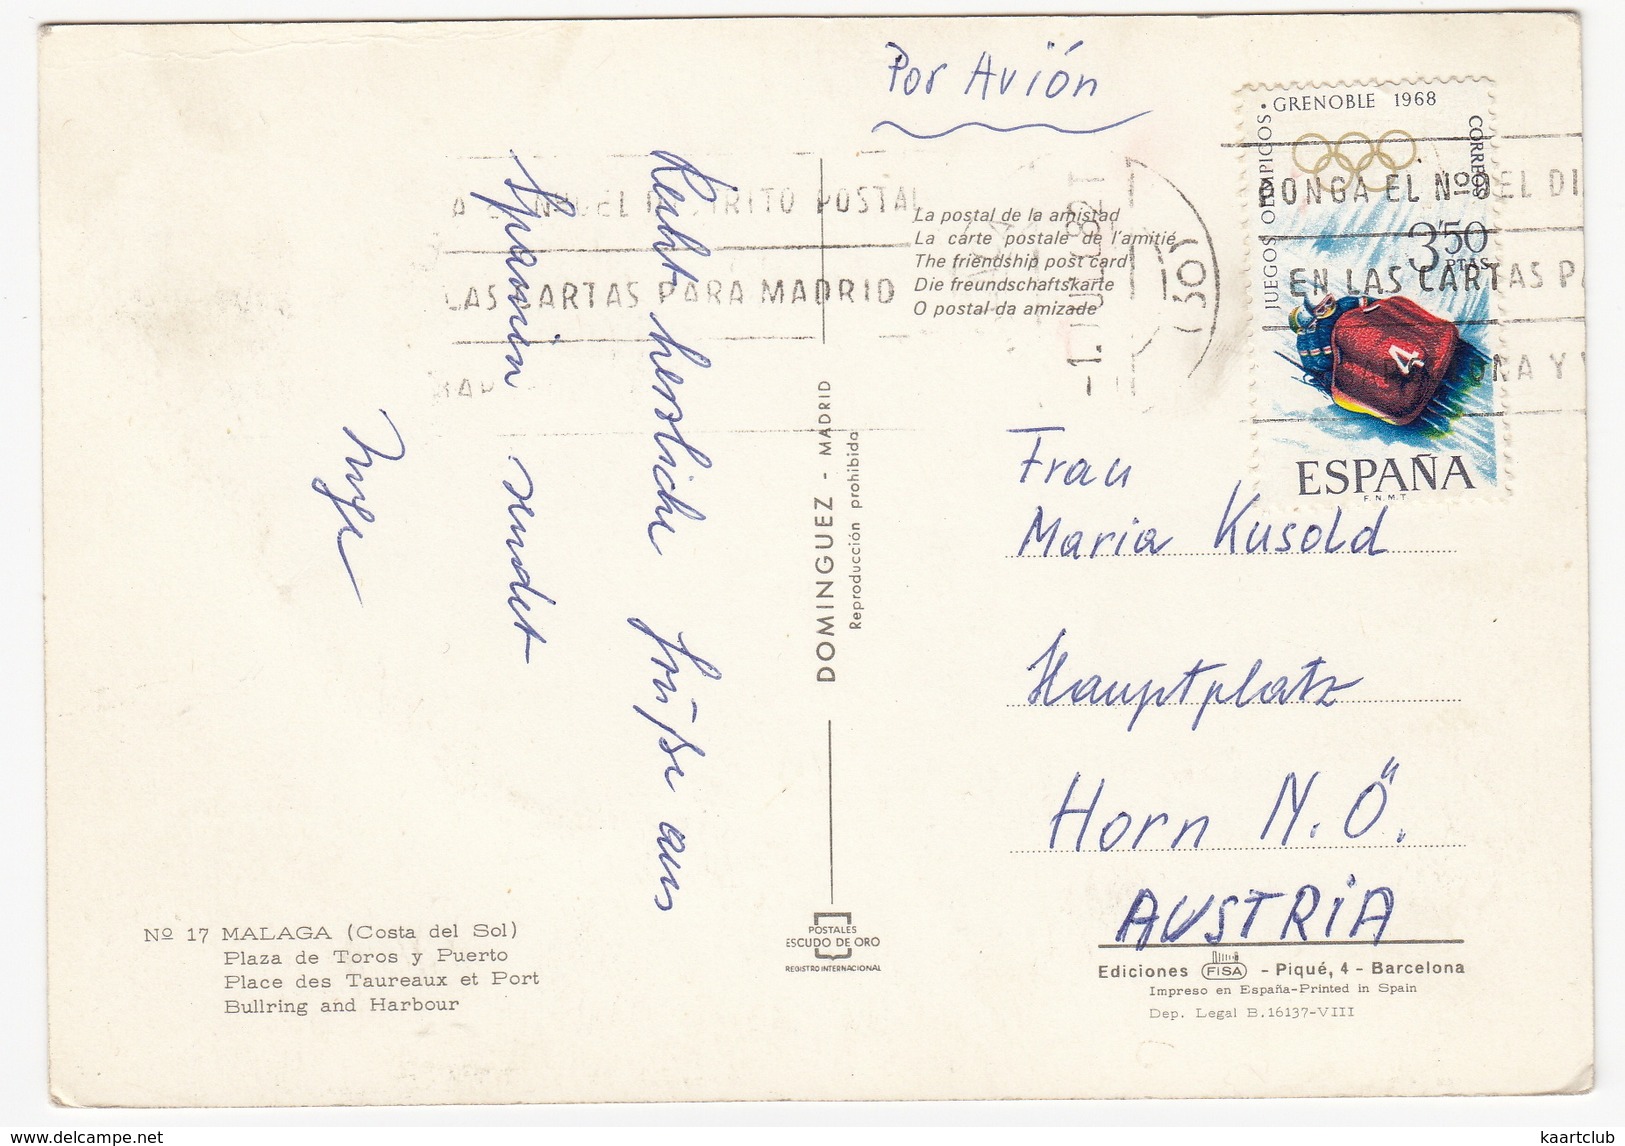 Por Avión
GRENOBLE 1968
JUEGOS OLIMPICOS
CORREOS
3'50
PTAS
4
ESPAÑA
F.N.M.T
PONGA EL Nº DEL DI
EN LAS CARTAS PA
NA Y
DISTRITO POSTAL
LAS CARTAS PARA MADRID
La postal de la amistad
La carte postale de l'amitié
The friendship post card
Die freundschaftskarte
O postal da amizade
Recht herzliche Grüße aus
Spanien sendet
Inge
DOMINGUEZ - MADRID
Reproducción prohibida
Frau
Maria Kusold
Hauptplatz
Horn N.Ö.
AUSTRiA
Nº 17 MALAGA (Costa del Sol)
Plaza de Toros y Puerto
Place des Taureaux et Port
Bullring and Harbour
POSTALES
ESCUDO DE ORO
REGISTRO INTERNACIONAL
Ediciones FISA - Piqué, 4 - Barcelona
Impreso en España-Printed in Spain
Dep. Legal B.16137-VIII
www.delcampe.net
kaartclub